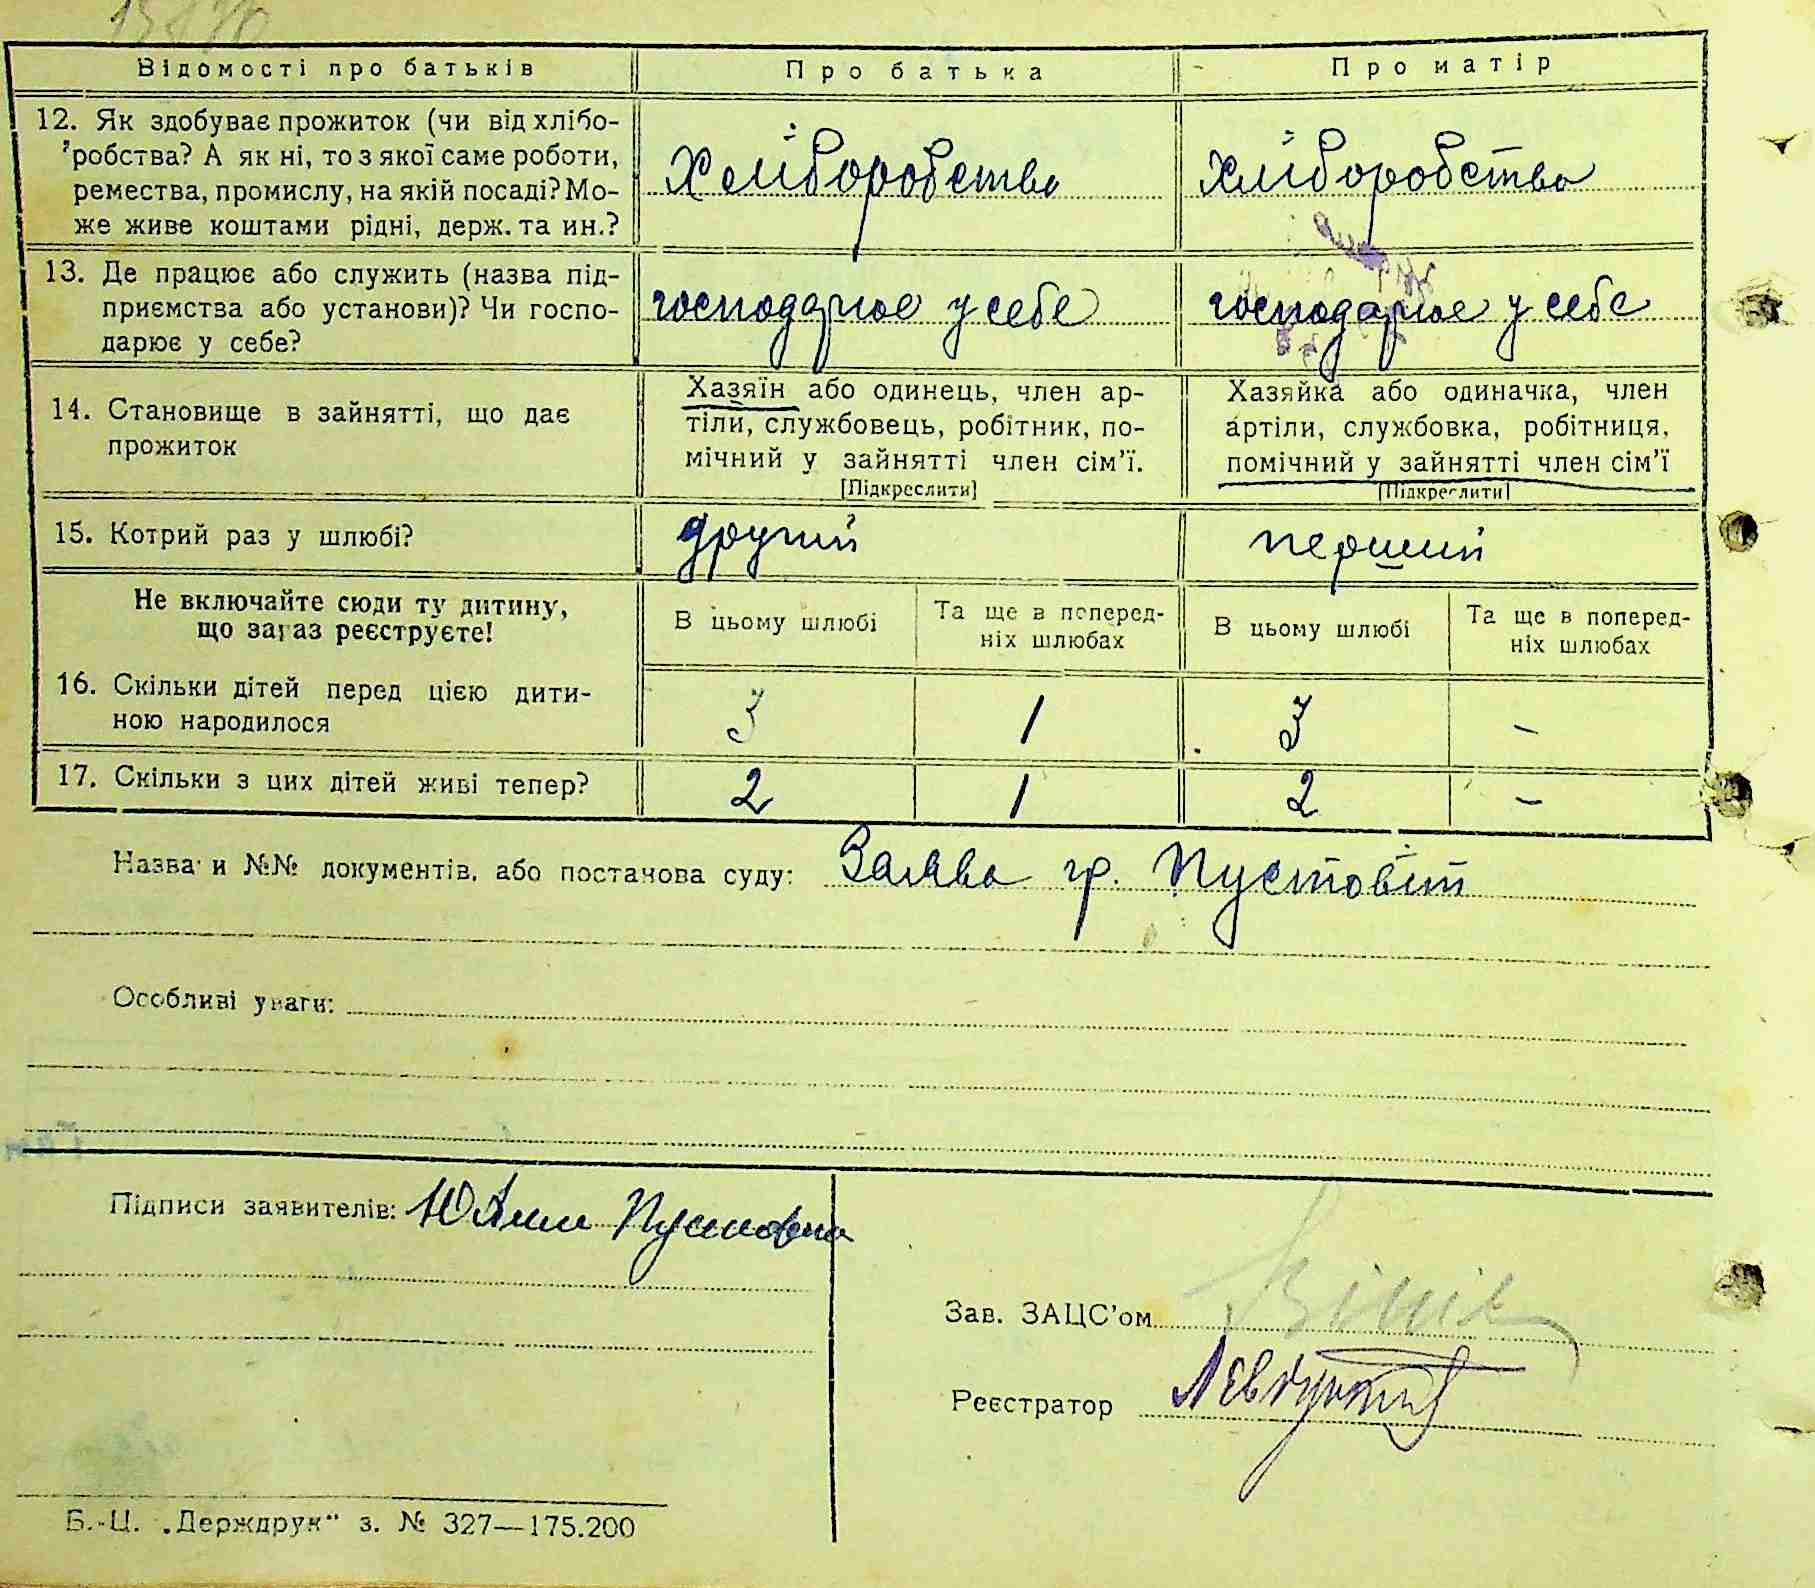 Відомості про батьків
Про батька
Про матір
12. Як здобуває прожиток (чи від хлібо-
робства? А як ні, то з якої саме роботи,
ремества, промислу, на якій посаді? Мо-
же живе коштами рідні, держ. та ин.?
Хліборобство
Хліборобство
13. Де працює або служить (назва під-
приємства або установи)? Чи госпо-
дарює у себе?
господарює у себе
господарює у себе
14. Становище в зайнятті, що дає
прожиток
Хазяїн або одинець, член ар-
тіли, службовець, робітник, по-
мічний у зайнятті член сім’ї.
[Підкреслити]
Хазяйка або одиначка, член
артіли, службовка, робітниця,
помічний у зайнятті член сім’ї
[Підкреслити]
15. Котрий раз у шлюбі?
другий
перший
Не включайте сюди ту дитину,
що зараз реєструєте!
В цьому шлюбі
Та ще в поперед-
ніх шлюбах
В цьому шлюбі
Та ще в поперед-
ніх шлюбах
16. Скільки дітей перед цією дити-
ною народилося
3
1
3
-
17. Скільки з цих дітей живі тепер?
2
1
2
-
Назва и №№ документів, або постанова суду: Заява гр. Пустовіт
Особливі уваги:
Підписи заявителів:
Зав. ЗАЦС’ом
Реєстратор
Б.-Ц. „Держдрук“ з. № 327—175.200